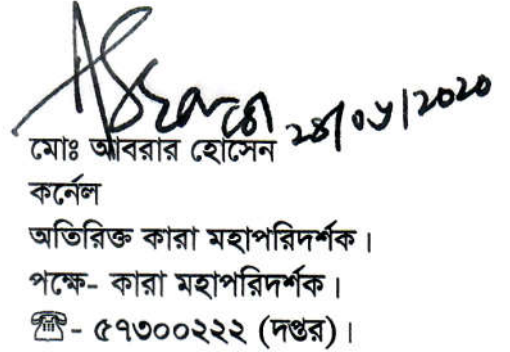 মোঃ আবরার হোসেন
কর্নেল
অতিরিক্ত কারা মহাপরিদর্শক।
পক্ষে- কারা মহাপরিদর্শক।
☎- ৫৭৩০০২২২ (দপ্তর)।